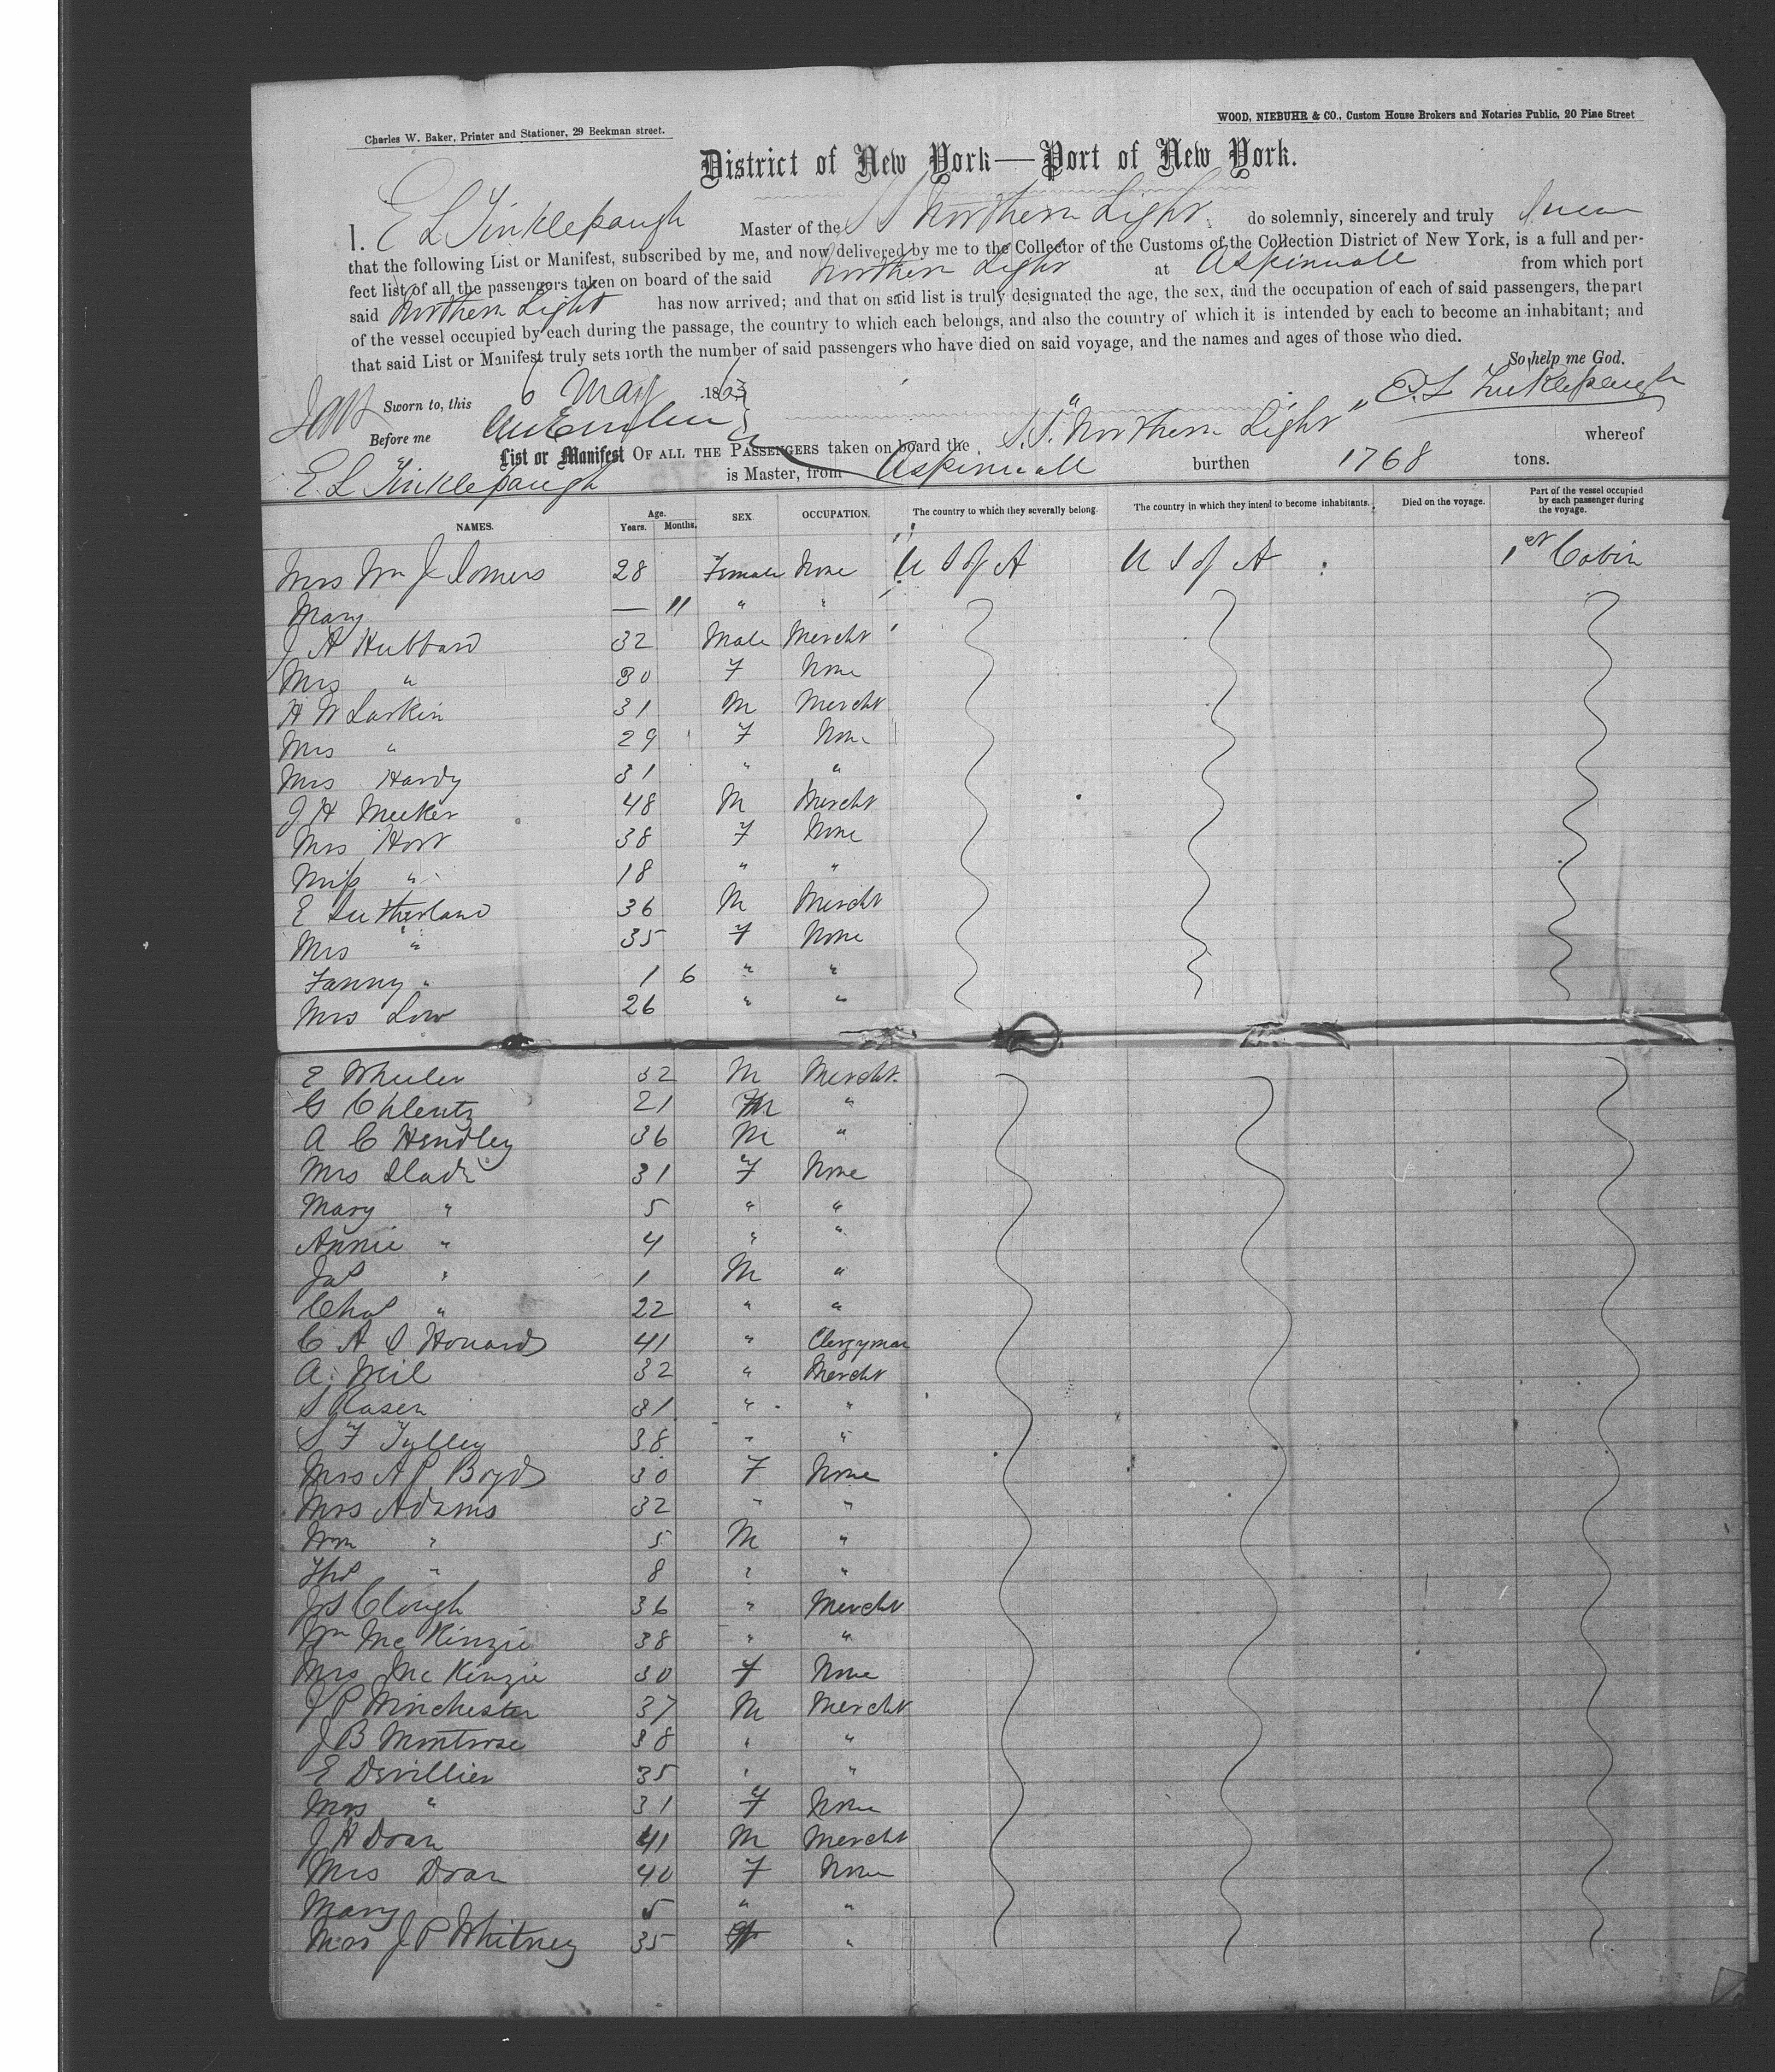 Charles W. Baker, Printer and Stationer, 29 Beekman street.
WOOD, NIEBUHR & CO., Custom House Brokers and Notaries Public, 20 Pine Street
District of New York—Port of New York.
I, E L Tinklepaugh Master of the S S Northern Light do solemnly, sincerely and truly swear
that the following List or Manifest, subscribed by me, and now delivered by me to the Collector of the Customs of the Collection District of New York, is a full and per-
fect list of all the passengers taken on board of the said Northern Light at Aspinwall from which port
said Northern Light has now arrived; and that on said list is truly designated the age, the sex, and the occupation of each of said passengers, the part
of the vessel occupied by each during the passage, the country to which each belongs, and also the country of which it is intended by each to become an inhabitant; and
that said List or Manifest truly sets forth the number of said passengers who have died on said voyage, and the names and ages of those who died.
So help me God.
Sworn to, this 6 May 1863 E. L Tinklepaugh
Before me
List or Manifest OF ALL THE PASSENGERS taken on board the S.S. "Northern Light" whereof
E. L Tinklepaugh is Master, from Aspinwall burthen 1768 tons.
NAMES. Age. Years. Months. SEX. OCCUPATION. The country to which they severally belong. The country in which they intend to become inhabitants. Died on the voyage. Part of the vessel occupied by each passenger during the voyage.
Mrs Wm J Somers 28 Female None U S of A U S of A 1st Cabin
Mary — 11 " "
J A Hubbard 32 Male Mercht
Mrs " 30 F None
H W Larkin 31 M Mercht
Mrs " 29 F None
Mrs Hardy 31 " "
J H Meeker 48 M Mercht
Mrs Hort 38 F None
Miss " 18 " "
E Sutherland 36 M Mercht
Mrs " 35 F None
Fanny " 1 6 " "
Mrs Low 26 " "
E Wheeler 32 M Mercht
G Chlentz 21 M "
A C Hendley 36 M "
Mrs Slade 31 F None
Mary " 5 " "
Annie " 4 " "
Jas " 1 M "
Chas " 22 " "
C A S Howard 41 " Clergyman
A. Weil 32 " Mercht
S Rasen 31 " "
S F Tylley 38 " "
Mrs A P Boyd 30 F None
Mrs Adams 32 " "
Wm " 5 M "
Ths " 8 " "
J S Clough 36 " Mercht
Wm McKinzie 38 " "
Mrs McKinzie 30 F None
J P Winchester 37 M Mercht
J B Montrose 38 " "
E Devillier 35 " "
Mrs " 31 F None
J H Doan 41 M Mercht
Mrs Doan 40 F None
Mary 5 " "
Mrs J P Whitney 35 "